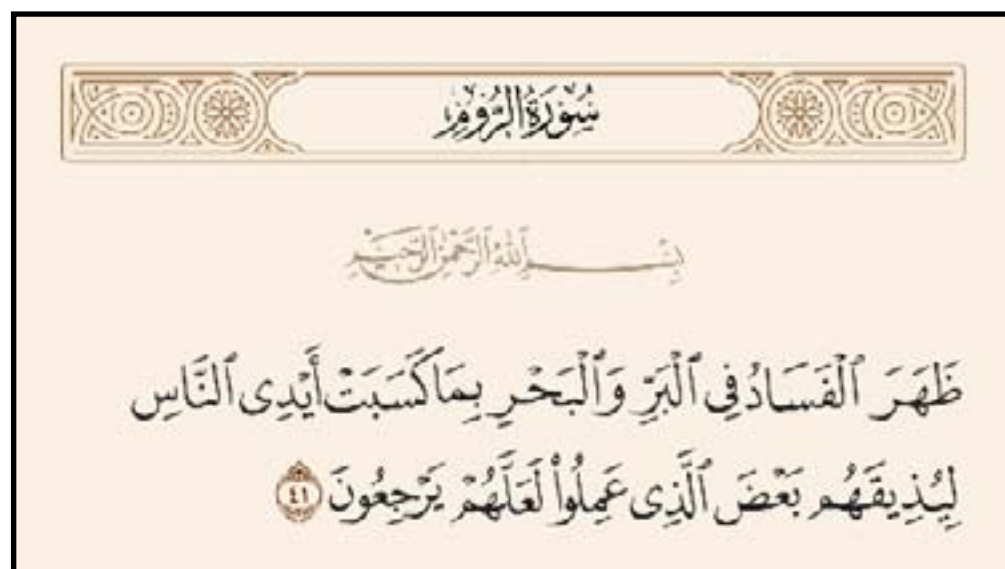 سُورَةُ الرُّومِ
بِسْمِ ٱللَّهِ ٱلرَّحْمَٰنِ ٱلرَّحِيمِ
ظَهَرَ ٱلْفَسَادُ فِى ٱلْبَرِّ وَٱلْبَحْرِ بِمَا كَسَبَتْ أَيْدِى ٱلنَّاسِ
لِيُذِيقَهُم بَعْضَ ٱلَّذِى عَمِلُوا۟ لَعَلَّهُمْ يَرْجِعُونَ ٤١